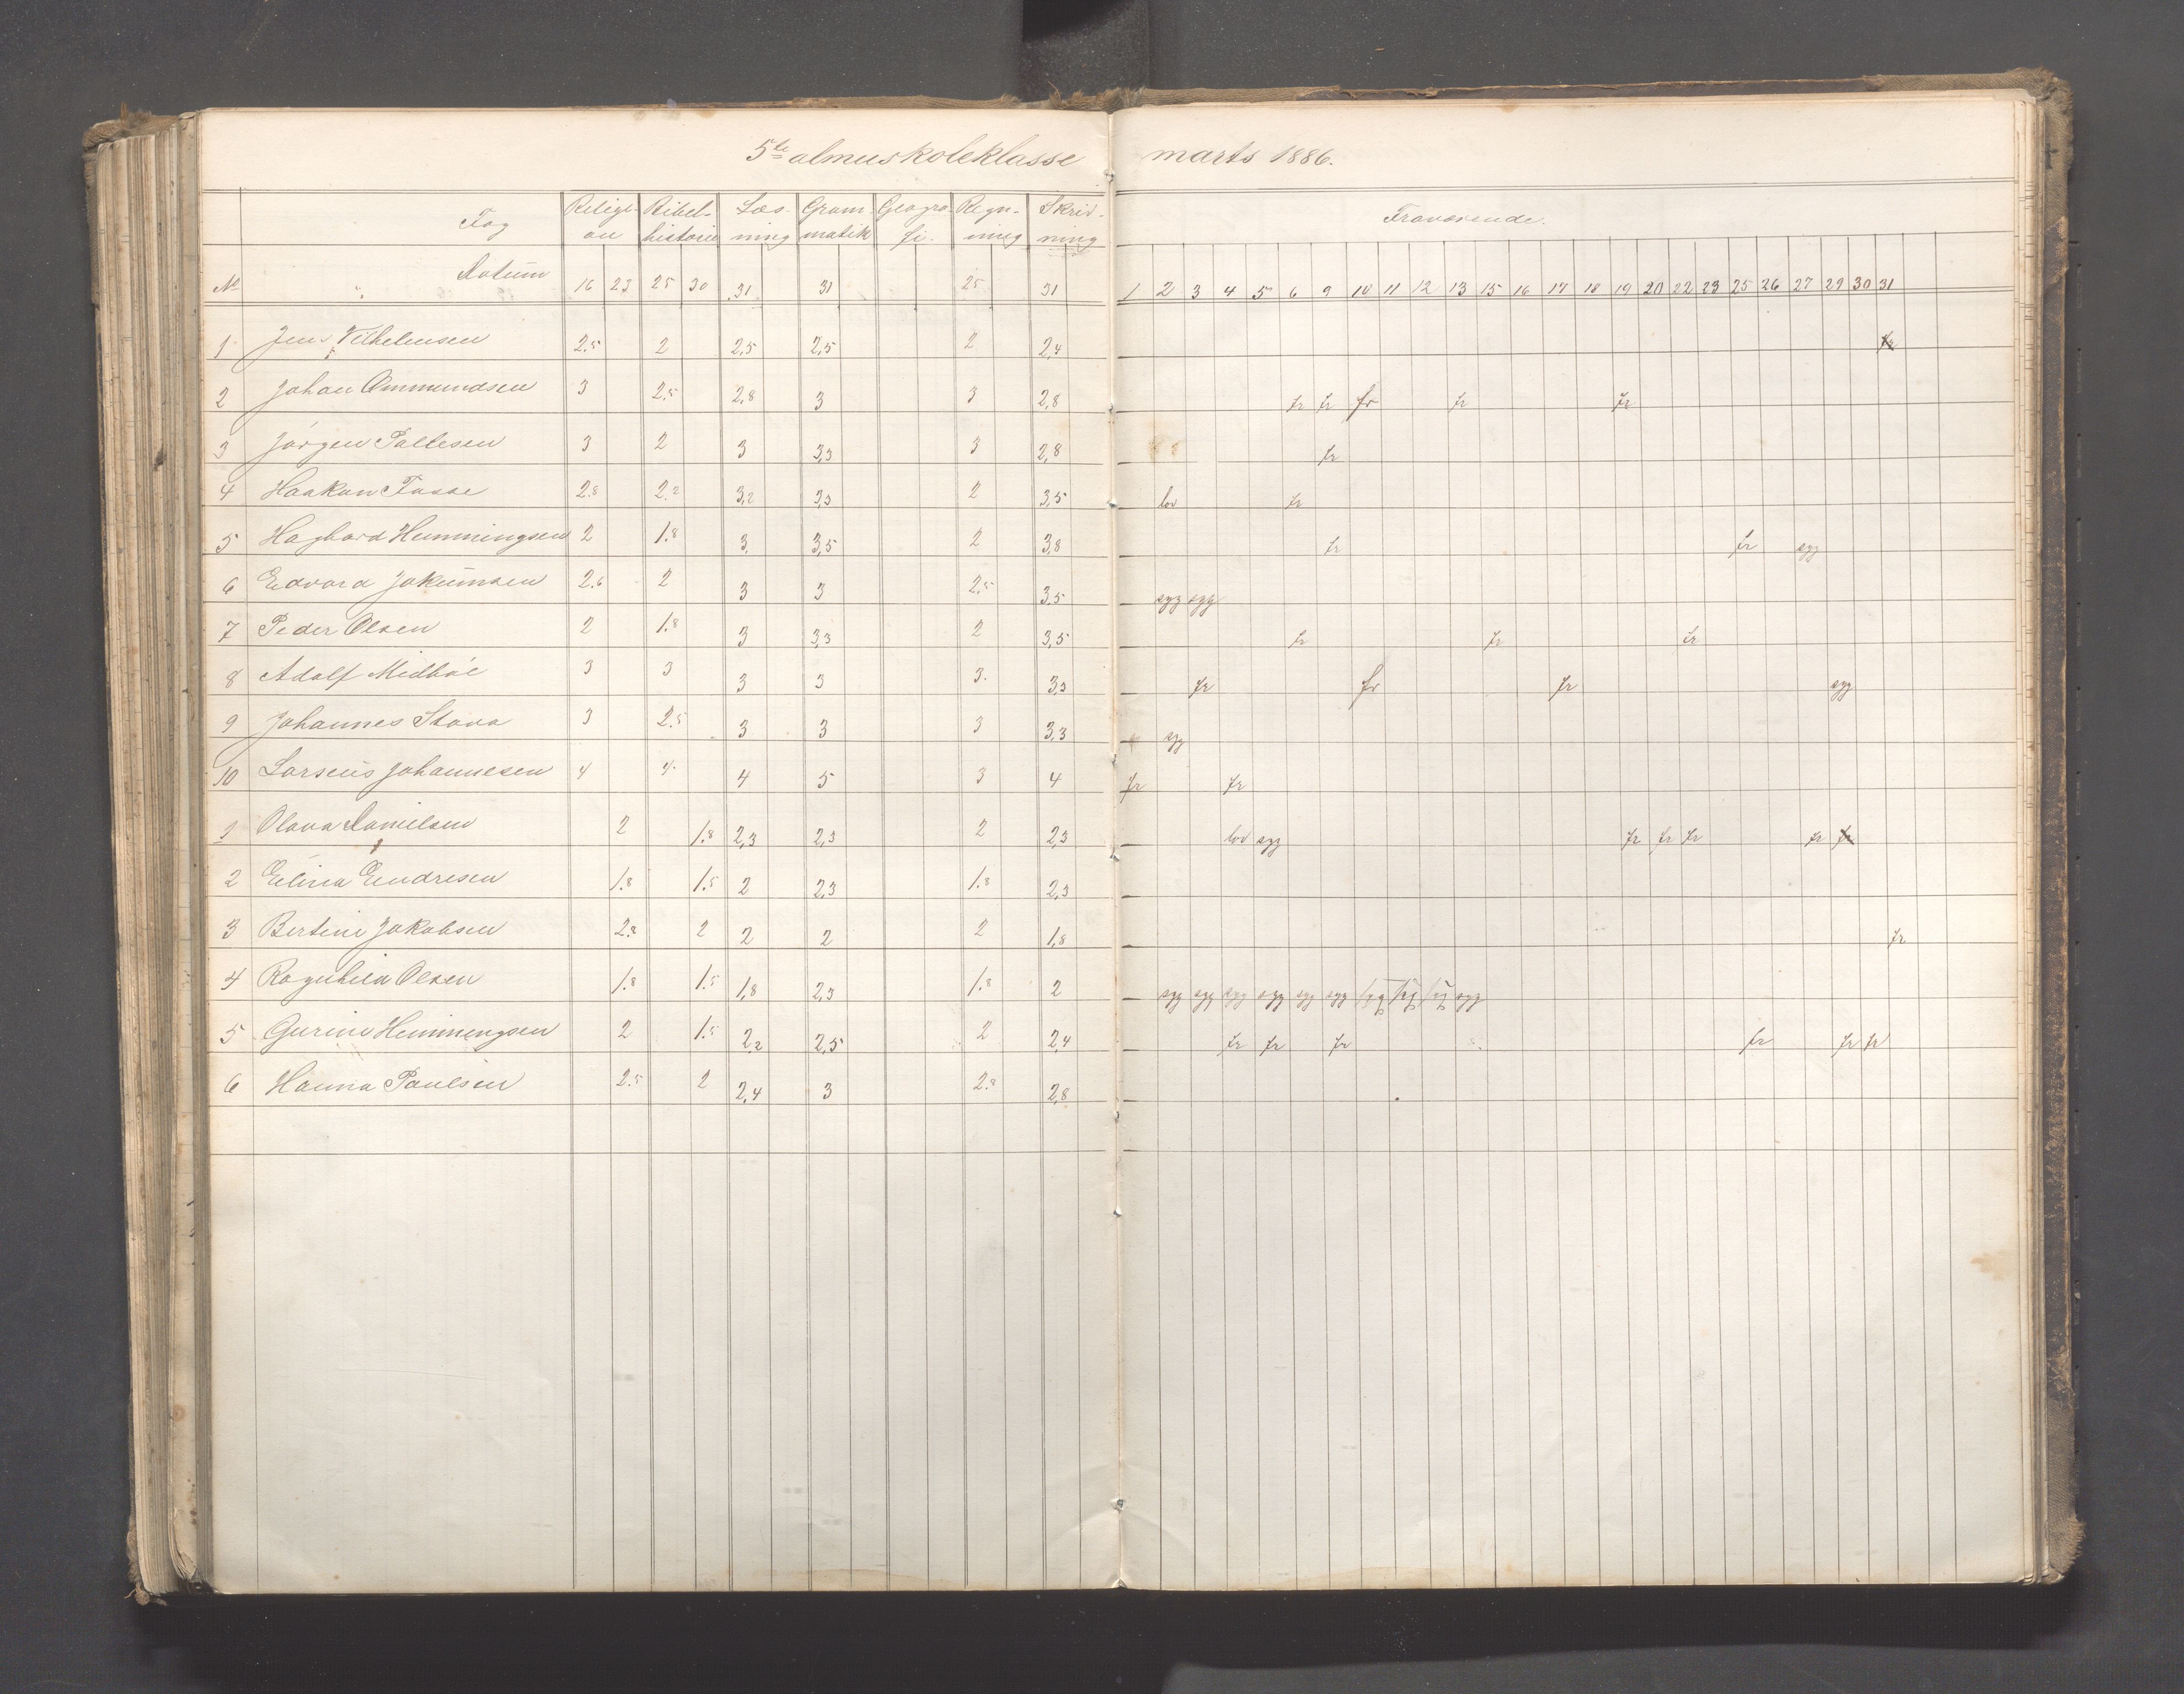 5te almueskoleklasse marts 1886.
Fag Religi- Bibel- Læs- Gram- Geogra- Regn- Skriv- Fraværende.
on historie ning matik fi. ning ning
No Datum 16 23 25 30 31 31 25 31 1 2 3 4 5 6 9 10 11 12 13 15 16 17 18 19 20 22 23 25 26 27 29 30 31
1 Jens Vilhelmsen 2.5 2 2,5 2,5 2 2,4 fr
2 Johan Ommundsen 3 2.5 2,8 3 3 2,8 fr fr fr fr fr
3 Jörgen Pallesen 3 2 3 3,3 3 2,8 fr
4 Haakon Fosse 2.8 2.2 3,2 3,3 2 3,5 lov fr
5 Hagbard Hemmingsen 2 1.8 3 3,5 2 3,8 fr fr syg
6 Edvard Jokumsen 2.6 2 3 3 2,5 3,5 syg syg
7 Peder Olsen 2 1.8 3 3,3 2 3,5 fr fr fr
8 Adolf Midböe 3 3 3 3 3. 3,3 fr fr fr syg
9 Johannes Stava 3 2.5 3 3 3 3,3 syg
10 Larseus Johannesen 4 4 4 5 3 4 fr fr
1 Olava Danielsen 2 1.8 2,3 2,3 2 2,3 lov syg fr fr fr fr fr
2 Elina Endresen 1.8 1.5 2 2,3 1.8 2,3
3 Bertine Jakobsen 2.8 2 2 2 2 1,8 fr
4 Ragnhild Olsen 1.8 1.5 1,8 2,3 1.8 2 syg syg syg syg syg syg syg syg syg syg
5 Gurine Hemmingsen 2 1.5 2,2 2,5 2 2,4 fr fr fr fr fr fr
6 Hanna Paulsen 2.5 2 2,4 3 2.8 2,8